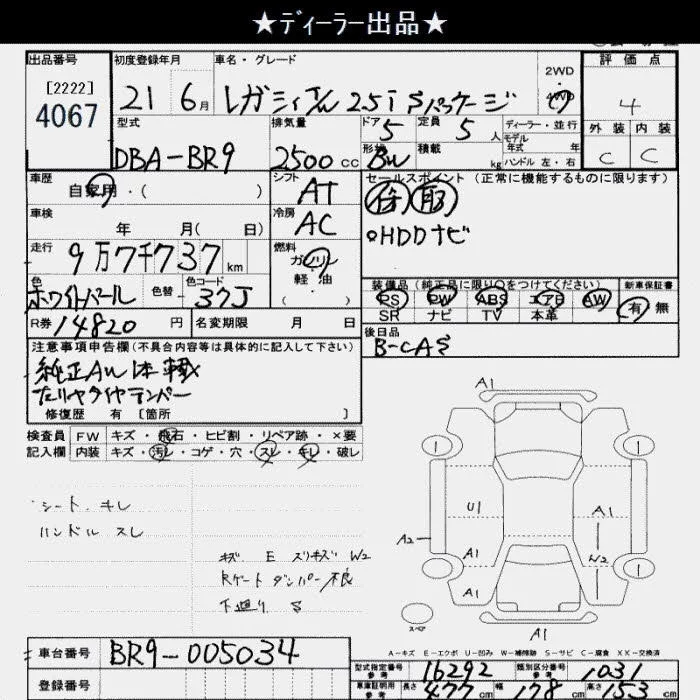 ★ディーラー出品★
出品番号
[2222]
4067
初度登録年月
21 6月
車名・グレード
2.5i Sパッケージ
2WD
4WD
評価点
4
外装 内装
C C
型式
DBA-BR9
排気量
2500 CC
ドア 5
定員 5 人
形状 BW
積載 kg
ディーラー・並行
モデル年式 年
ハンドル 左・右
車歴
自家用・( )
シフト
AT
セールスポイント (正常に機能するものに限ります)
HDDナビ
車検
年 月( 日)
冷房
AC
走行
9万7千737 km
燃料
ガソリン
軽油
( ・ )
色
ホワイトパール
色替
色コード
37J
装備品(純正品に限り○をつけてください)
新車保証書
PS PW ABS エアB AW
SR ナビ TV 本革
有・無
R券 14820 円
名変期限 月 日
後日品
B-CAS
注意事項申告欄(不具合内容等は具体的に記入して下さい)
修復歴 有 [箇所 ]
検査員 FW キズ・飛石・ヒビ割・リペア跡・×要
記入欄 内装 キズ・汚レ・コゲ・穴・スレ・キレ・破レ
シート キレ
ハンドル スレ
キズ E スリキズ W2
Rゲート ダンパー不良
下廻り S
A1
1 1
U1 A1
A2
A1 W2
A1
1 1
スペア
A1
A-キズ E-エクボ U-凹み W-補修跡 S-サビ C-腐食 XX-交換済
車台番号 BR9-005034
登録番号
型式指定番号 参考 16292
類別区分番号 参考 1031
車庫証明用 参考 長さ 477 cm 幅 178 cm 高さ 153 cm